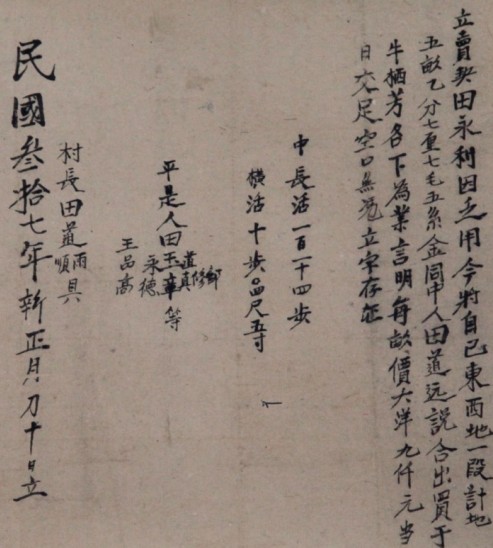 立賣契田永利因乏用今將自己東西地一段計地
五畝乙分七厘七毛五系仝同中人田道远説合出買于
牛栖芳名下為業言明每畝價大洋九仟元当
日交足空口無凭立字存証
中長活一百一十四步
横活十步品尺五寸
平是人田玉章等
道真
修
永德
王品高
村長田道順具
民國叁拾七年新正月初十日立